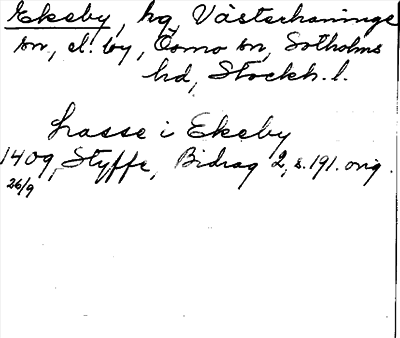 Ekeby, hg, Västerhaninge
sn, el. by, Ösmo sn, Sotholms
hd, Stockh. l.
Lasse i Ekeby
1409, Styffe, Bidrag 2, s. 191. orig.
26/9